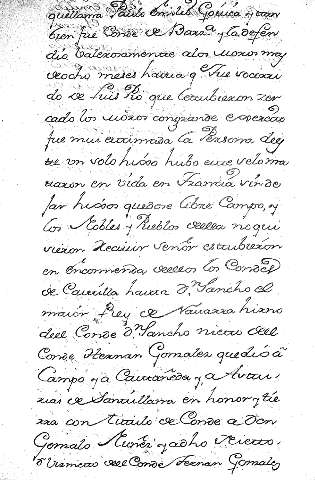 quellama Paulo Emilio Gotica y tam
bien fue Conde de Barza y la defen
dio balerosamente a los moros mas
deocho meses hasta q.e fue socorri
do de Luis Pio que letubieron zer
cado los moros con grande exercito
fue mui estimada la Persona de es
te un solo hixso hubo este velo ma
taron en vida en Francia vinde
jar hixsos quedose libre Campo, y
los Nobles y Pueblos deella no qui
sieron recivir señor estubieron
en Encomienda deellos los Condes
de Castilla hasta D.n Sancho el
maior Rey de Navarra hierno
deel Conde D.n Sancho nieto deel
Conde Hernan Gomales quedio â
Campo y a Castañeda y a Astu
rias de Santillana en honor y tie
rra con titulo de Conde a Don
Gomalo Nuñez y adho Nieto,
o Visnieto deel Conde Fernan Gomales